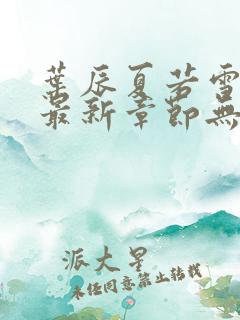 葉辰夏若雪
最新章節無
派大星
未經同意禁止轉載